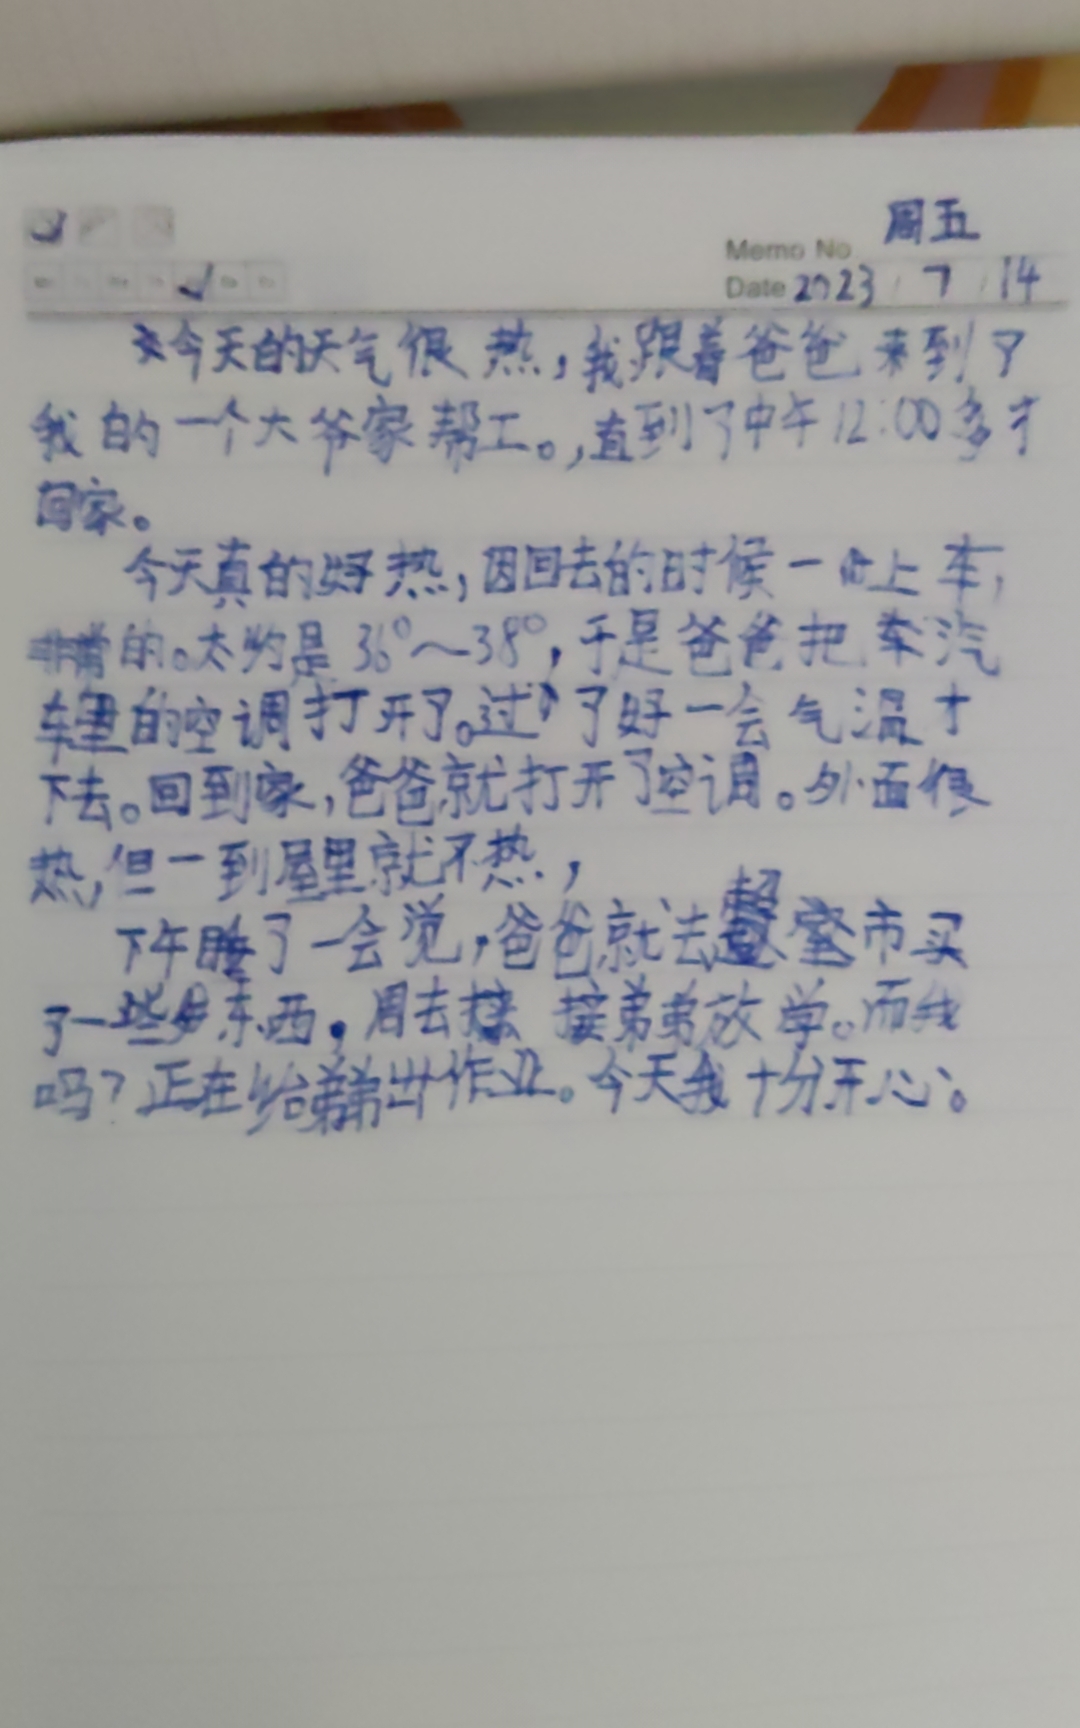 周五
Memo No
Date 2023 / 7 / 14
今天的天气很热,我跟着爸爸来到了
我的一个大爷家帮工。,直到了中午12:00多才
回家。
今天真的好热,因回去的时候一上车,
非常的。大约是36°~38°,于是爸爸把车汽
车里的空调打开了。过了好一会气温才
下去。回到家,爸爸就打开了空调。外面很
热,但一到屋里就不热,
下午睡了一会觉,爸爸就去超市买
了一些东西,周去接弟弟放学。而我
吗?正在给弟弟出作业。今天我十分开心。